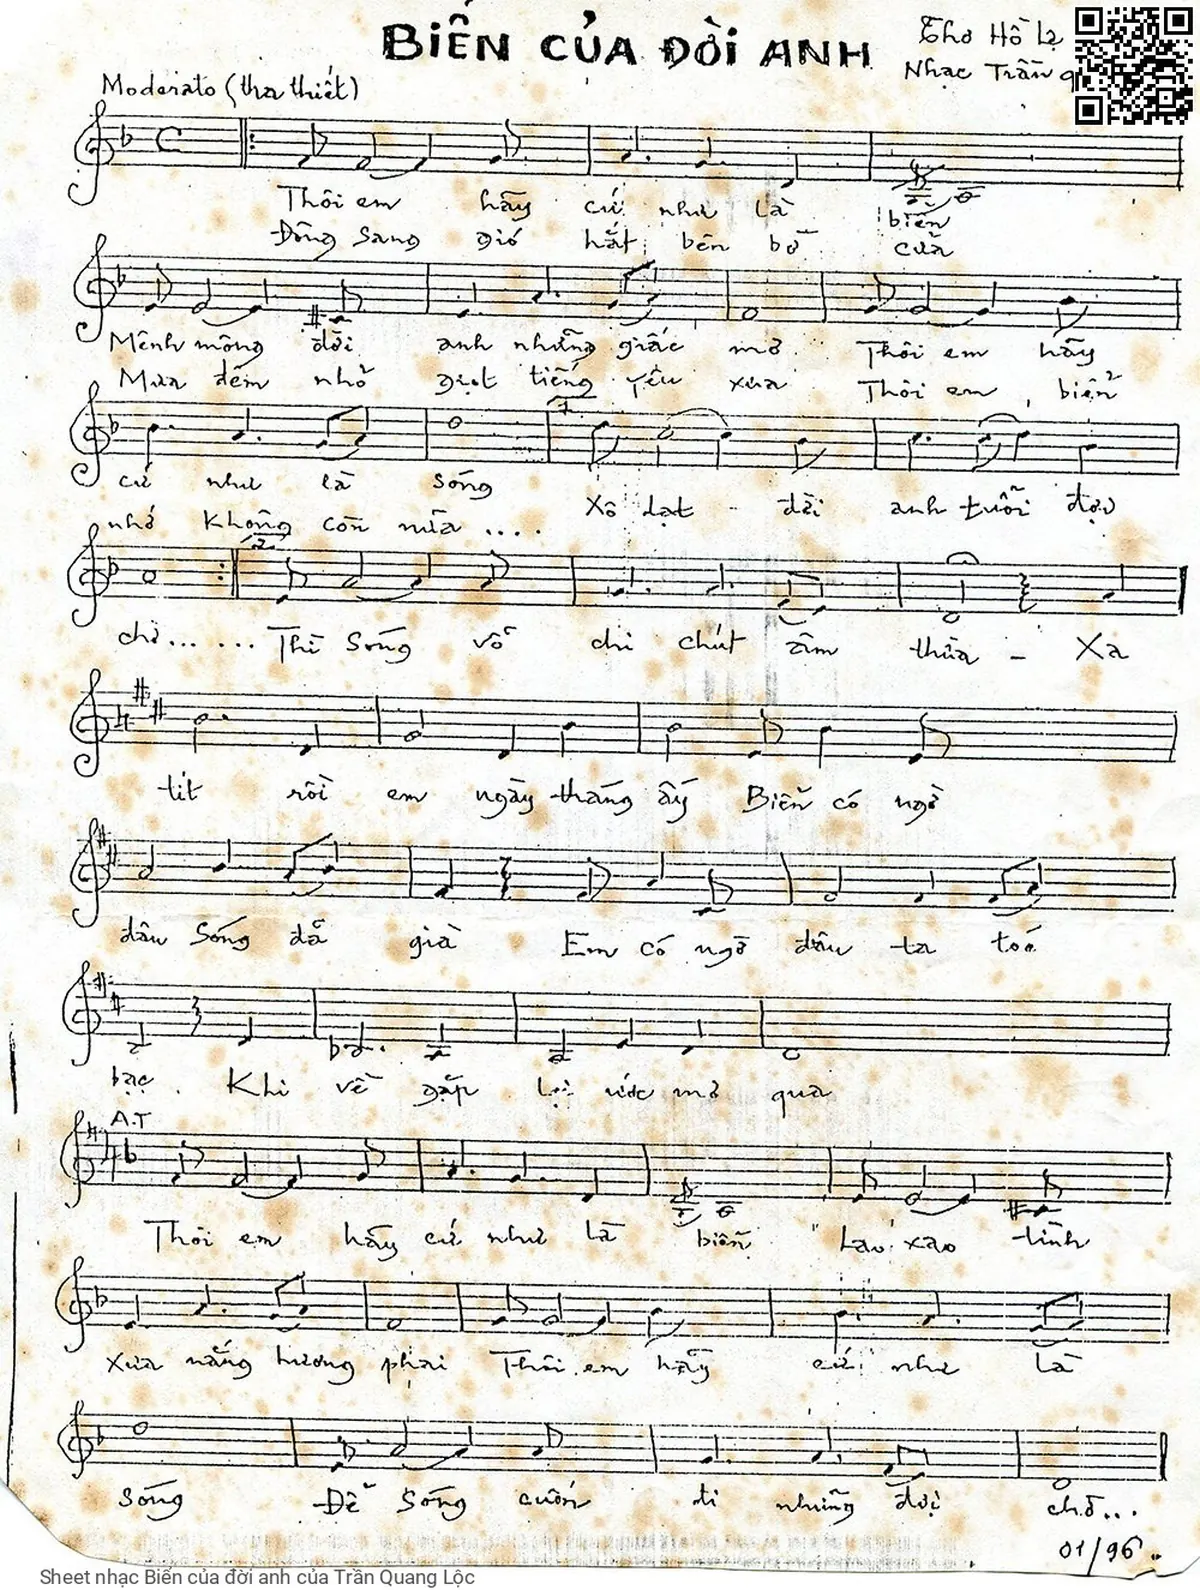 BIỂN CỦA ĐỜI ANH
Thơ Hồ Lệ
Nhạc Trần q
Moderato (tha thiết)
Thôi em hãy cứ như là biển
Đông sang gió hắt bên bờ của
Mênh mông đời anh những giấc mơ Thôi em hãy
Mưa đêm nhỏ giọt tiếng yêu xưa Thôi em, biển
1
cứ như là sóng Xô dạt - đời anh tuổi đợi
nhớ không còn nữa ....
2
chờ... ... Thì sóng vỗ chi chút âm thừa - Xa
tít rồi em ngày tháng ấy Biển có ngờ
đâu sóng đã già Em có ngờ đâu ta tóc
bạc. Khi về gặp lại ước mơ qua
A.T
Thôi em hãy cứ như là biển Lao xao tình
xưa nắng hương phai Thôi em hãy cứ như là
sóng Để sóng cuốn đi những đợi chờ...
01/96
Sheet nhạc Biển của đời anh của Trần Quang Lộc